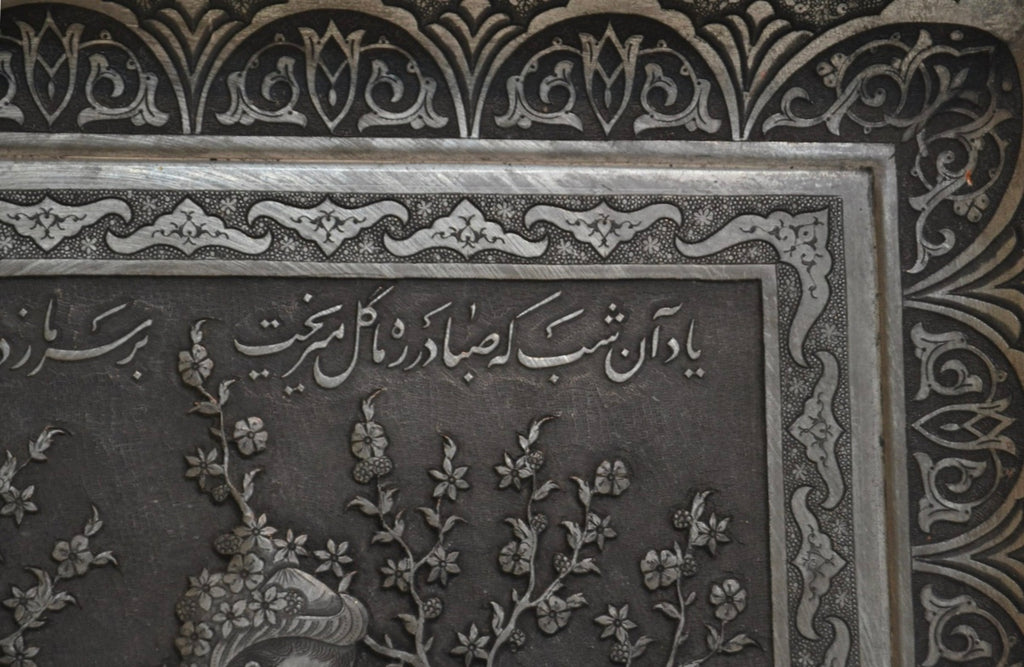 یاد آن شب که صبا در ره ما گل میریخت
بر سر ما ز